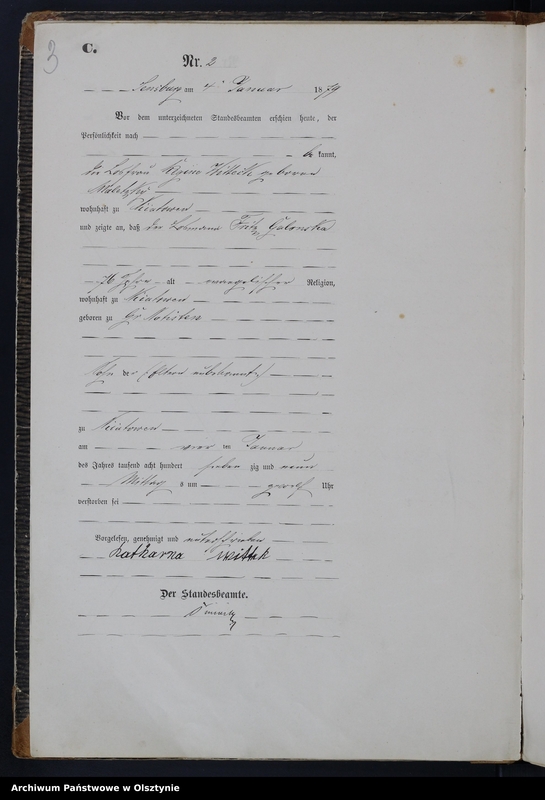 3
C.
Nr. 2
Sensburg am 4. Januar 1879
Vor dem unterzeichneten Standesbeamten erschien heute, der
Persönlichkeit nach
be kannt,
die Losfrau Wittek geborene
wohnhaft zu
und zeigte an, daß der Losmann Fritz Galonska
76 Jahre alt evangelischer Religion,
wohnhaft zu
geboren zu Gr.
Sohn der (Eltern unbekannt)
zu
am vier ten Januar
des Jahres tausend acht hundert sieben zig und neun
Mittag s um zwölf Uhr
verstorben sei
Vorgelesen, genehmigt und unterschrieben
Katharna Wittek
Der Standesbeamte.
Archiwum Państwowe w Olsztynie